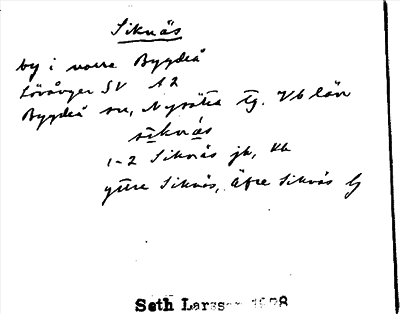 Siknäs
by i norra Bygdeå
Lövånger SV A2
Bygdeå sn, Nysätra tg. Vb län
siknäs
1-2 Siknäs jb, kk
yttre Siknäs, Äfre Siknäs
Seth Larsson 1928